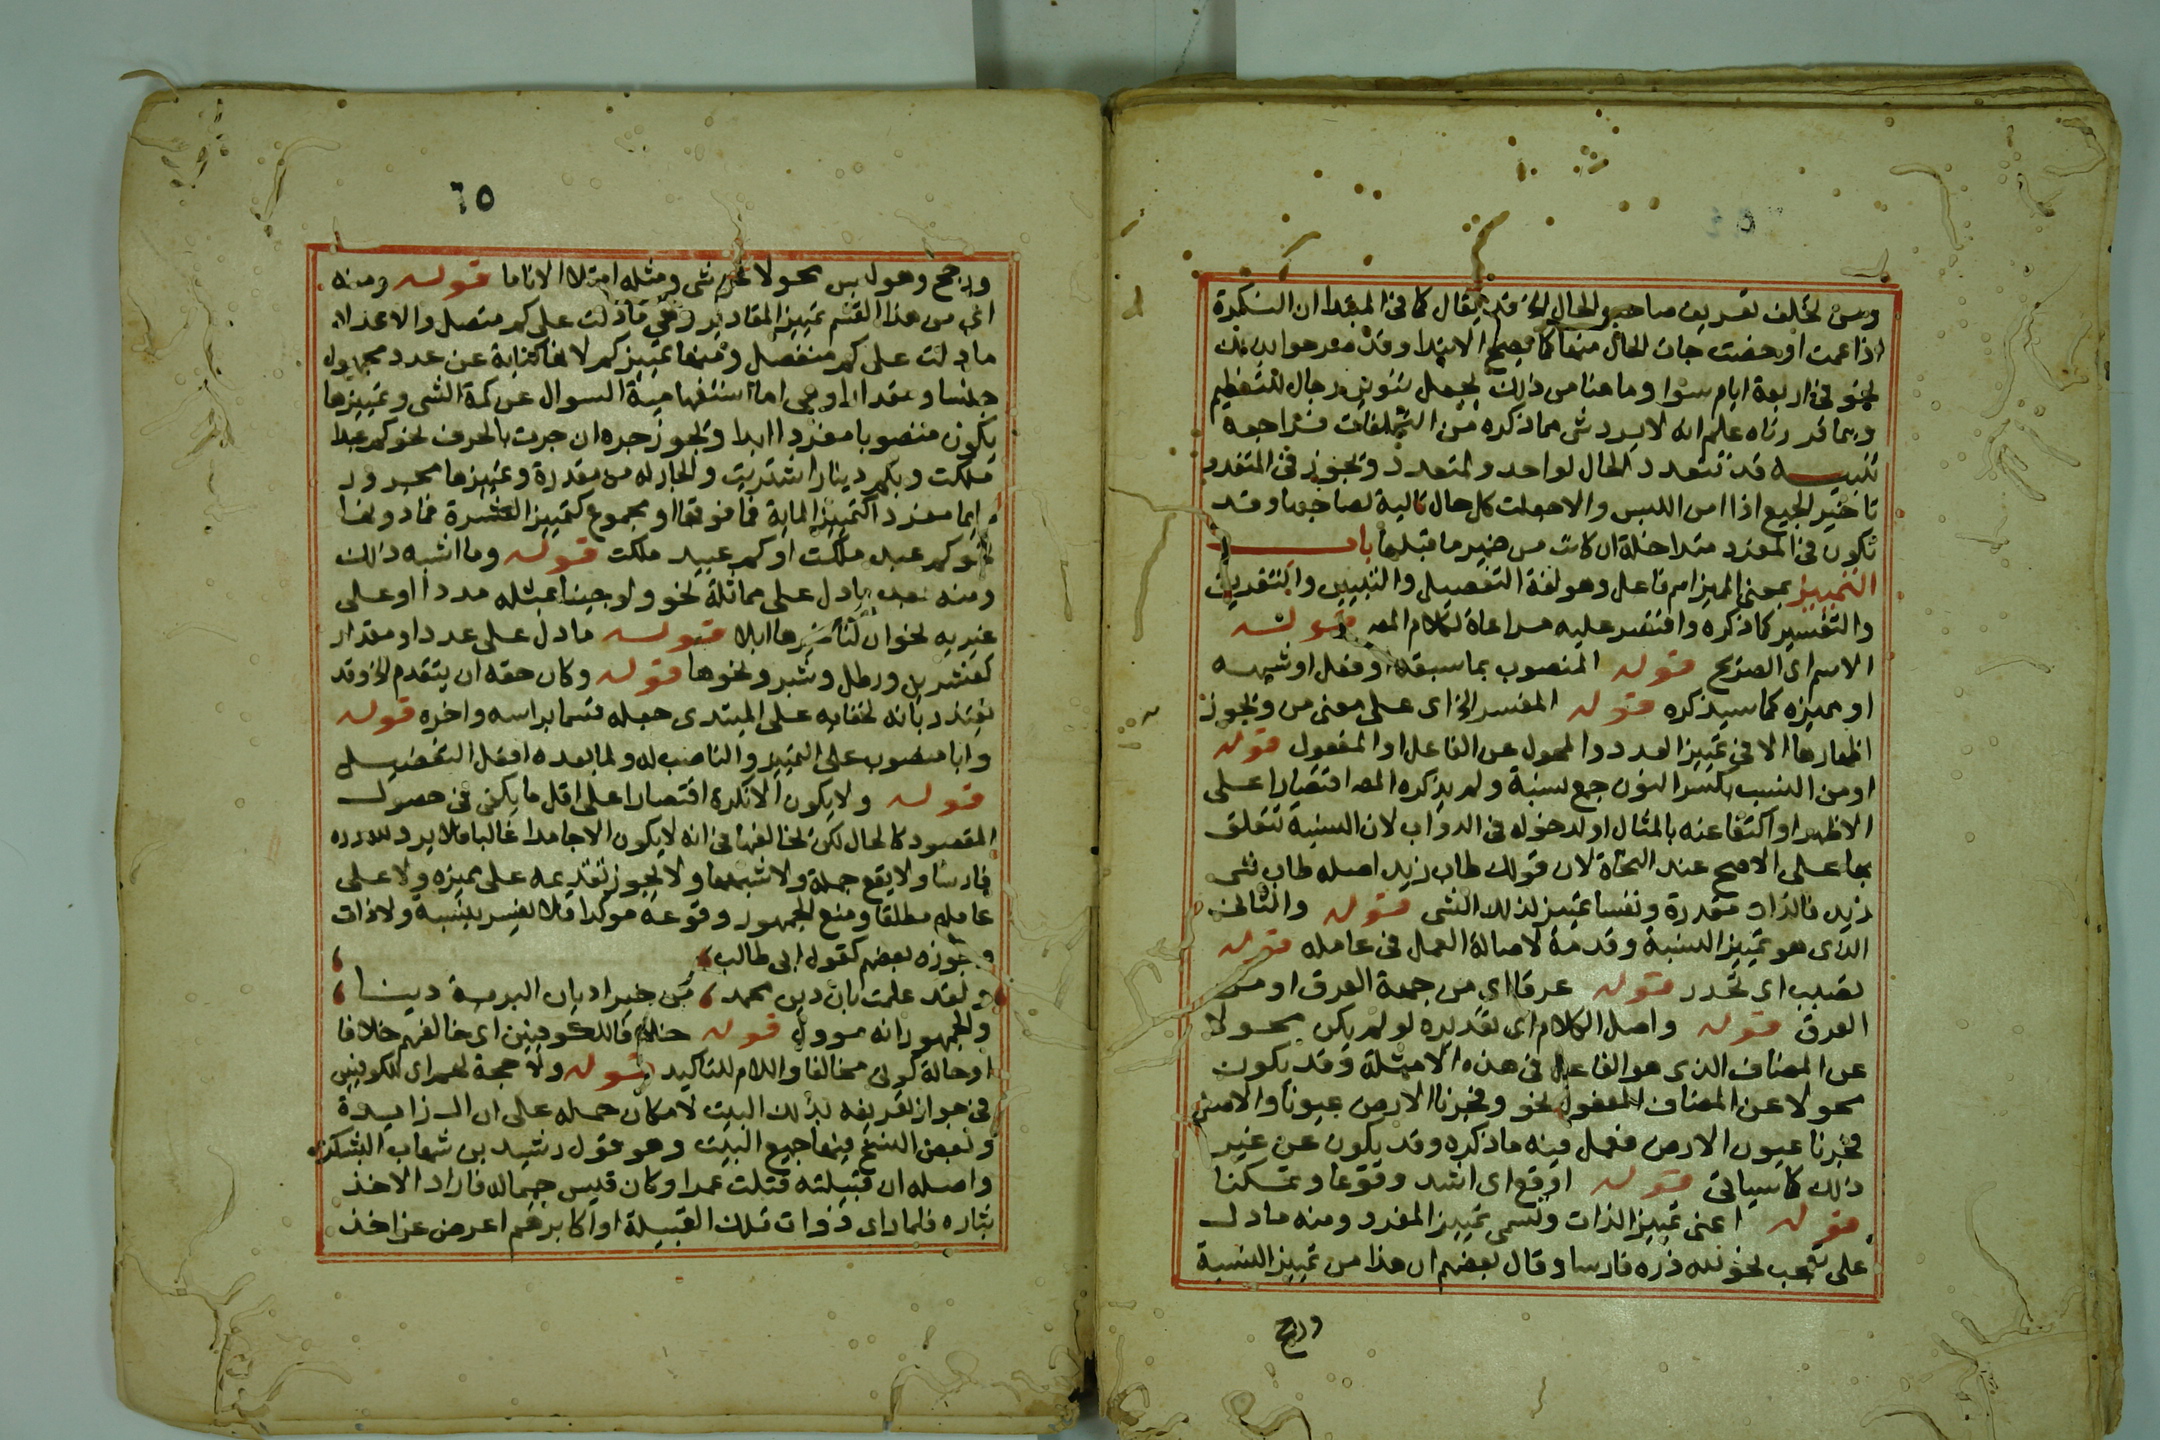 ومن تخلف تعريف صاحب الحال الخ قد يقال كما في المبتدا ان النكرة
اذا عمت او خصت جاز الحال منها كما يصح الابتدا وقد
نحو في اربعة ايام سوا وما هنا من ذلك بجعل تنوين رجال للتعظيم
وبما قررناه علم انه لا يرد شي مما ذكره من التكلفات فراجعه
تنبيه قد تتعدد الحال لواحد ولمتعدد ويجوز في المتعدد
تاخير الجميع اذا امن اللبس والا جعلت كل حال تالية لصاحبها وقد
تكون في المفرد متداخلة ان كانت من ضمير ما قبلها باب
التمييز بمعنى المميز اسم فاعل وهو لغة التفصيل والتبيين والتقدير
والتفسير كما ذكره واقتصر عليه مراعاة لكلام المص قوله
الاسم اي الصريح قوله المنصوب بما سبقه او فعل او شبهه
او مميزه كما سيذكره قوله المفسر الخ اي على معنى من ويجوز
اظهارها الا في تمييز العدد والمحول عن الفاعل او المفعول قوله
او من النسب بكسر النون جمع نسبة ولم يذكره المص اقتصارا على
الاظهر او اكتفا عنه بالمثال او لدخوله في الذوات لان النسبة تتعلق
بها على الاصح عند النحاة لان قولك طاب زيد اصله طاب شي
زيد فالذات مقدرة ونفسا تمييز لذلك الشي قوله والثاني
الذي هو تمييز النسبة وقدمه لاصالة العمل في عامله قوله
تصبب اي تحدر قوله عرقا اي من جهة العرق او من
العرق قوله واصل الكلام اي تقديره لو لم يكن محولا
عن المضاف الذي هو الفاعل في هذه الامثلة وقد يكون
محولا عن المضاف المفعول نحو وفجرنا الارض عيونا والاصل
فجرنا عيون الارض ففعل فيه ما ذكره وقد يكون عن غير
ذلك كما سياتي قوله اوقع اي اشد وقوعا وتمكنا
قوله اعني تمييز الذات ويسمى تمييز المفرد ومنه ما دل
على تعجب نحو لله دره فارسا وقال بعضهم ان هذا من تمييز النسبة
ورجح
٦٥
ورجح وهو ليس محولا عن شي ومثله امتلا الانا ما قوله ومنه
اي من هذا القسم تمييز المقادير وهي ما دلت على كم متصل والاعداد
ما دلت على كم منفصل ومنها تمييز كم لانها كناية عن عدد مجهول
جنسا ومقدارا وهي اما استفهامية السوال عن كمة الشي وتمييزها
يكون منصوبا مفردا ابدا ويجوز جره ان جرت بالحرف نحو كم عبدا
ملكت وبكم دينار اشتريت والجار له من مقدرة وتمييزها مجرور
دايما مفرد اكتمييز الماية فما فوقها او مجموع كتمييز العشرة فما دونها
نحو كم عبد ملكت او كم عبيد ملكت قوله وما اشبه ذلك
ومنه ما دل على مماثلة نحو ولو جينا بمثله مددا او على
غيريه نحو ان لنا غيرها ابلا قوله ما دل على عدد او مقدار
كعشرين ورطل وشبر ونحوها قوله وكان حقه ان يتقدم الخ وقد
يعتذر بانه لخفايه على المبتدى جعله قسما براسه واخره قوله
وابا منصوب على التمييز والناصب له ولما بعده افعل التفضيل
قوله ولا يكون الا نكرة اقتصارا على اقل ما يكفي في حصول
المقصود كالحال لكن تخالفها في انه لا يكون الا جامدا غالبا فلا يرد لله دره
فارسا ولا يقع جملة ولا شبهها ولا يجوز تقديمه على مميزه ولا على
عامله مطلقا ومنع الجمهور وقوعه موكدا فلا يفسر بنسبة ولا ذات
وجوزه بعضهم كقول ابي طالب
ولقد علمت بان دين محمد من خير اديان البرية دينا
والجمهور انه موول قوله خلافا للكوفيين اي خالفهم خلافا
او حالة كوني مخالفا واللام للتاكيد قوله ولا حجة لهم اي الكوفيين
في جواز تعريفه بذلك البيت لامكان حمله على ان ال زايدة
وبعض النسخ فيها جميع البيت وهو قول رشيد بن شهاب اليشكري
واصله ان قبيلته قتلت عمرا وكان قيس حماله فاراد الاخذ
بثاره فلما راى ذوات تلك القبيلة او اكابرهم اعرض عن اخذ